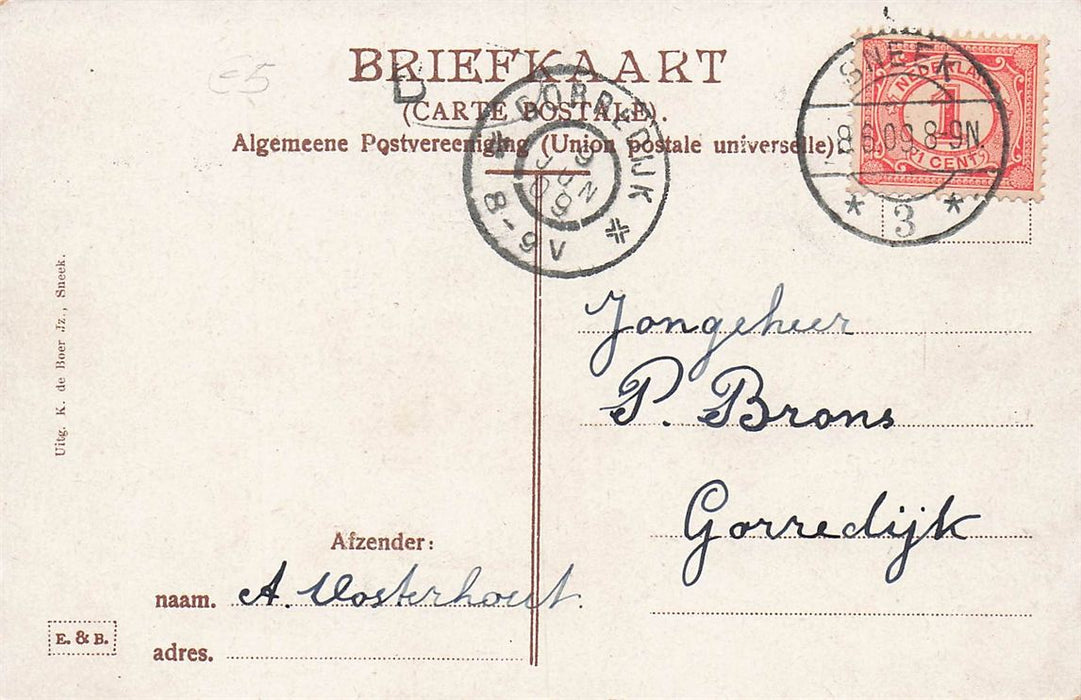 €5
BRIEFKAART
B
(CARTE POSTALE).
Algemeene Postvereeniging (Union postale universelle).
GORREDIJK
9
JUN
09
8-9V
SNEEK
8.6.09.8-9N
* 3 *
NEDERLAND
1
1 CENT
Uitg. K. de Boer Jz., Sneek.
Jongeheer
P. Brons
Gorredijk
Afzender:
naam. A. Oosterhout.
adres.
E. & B.